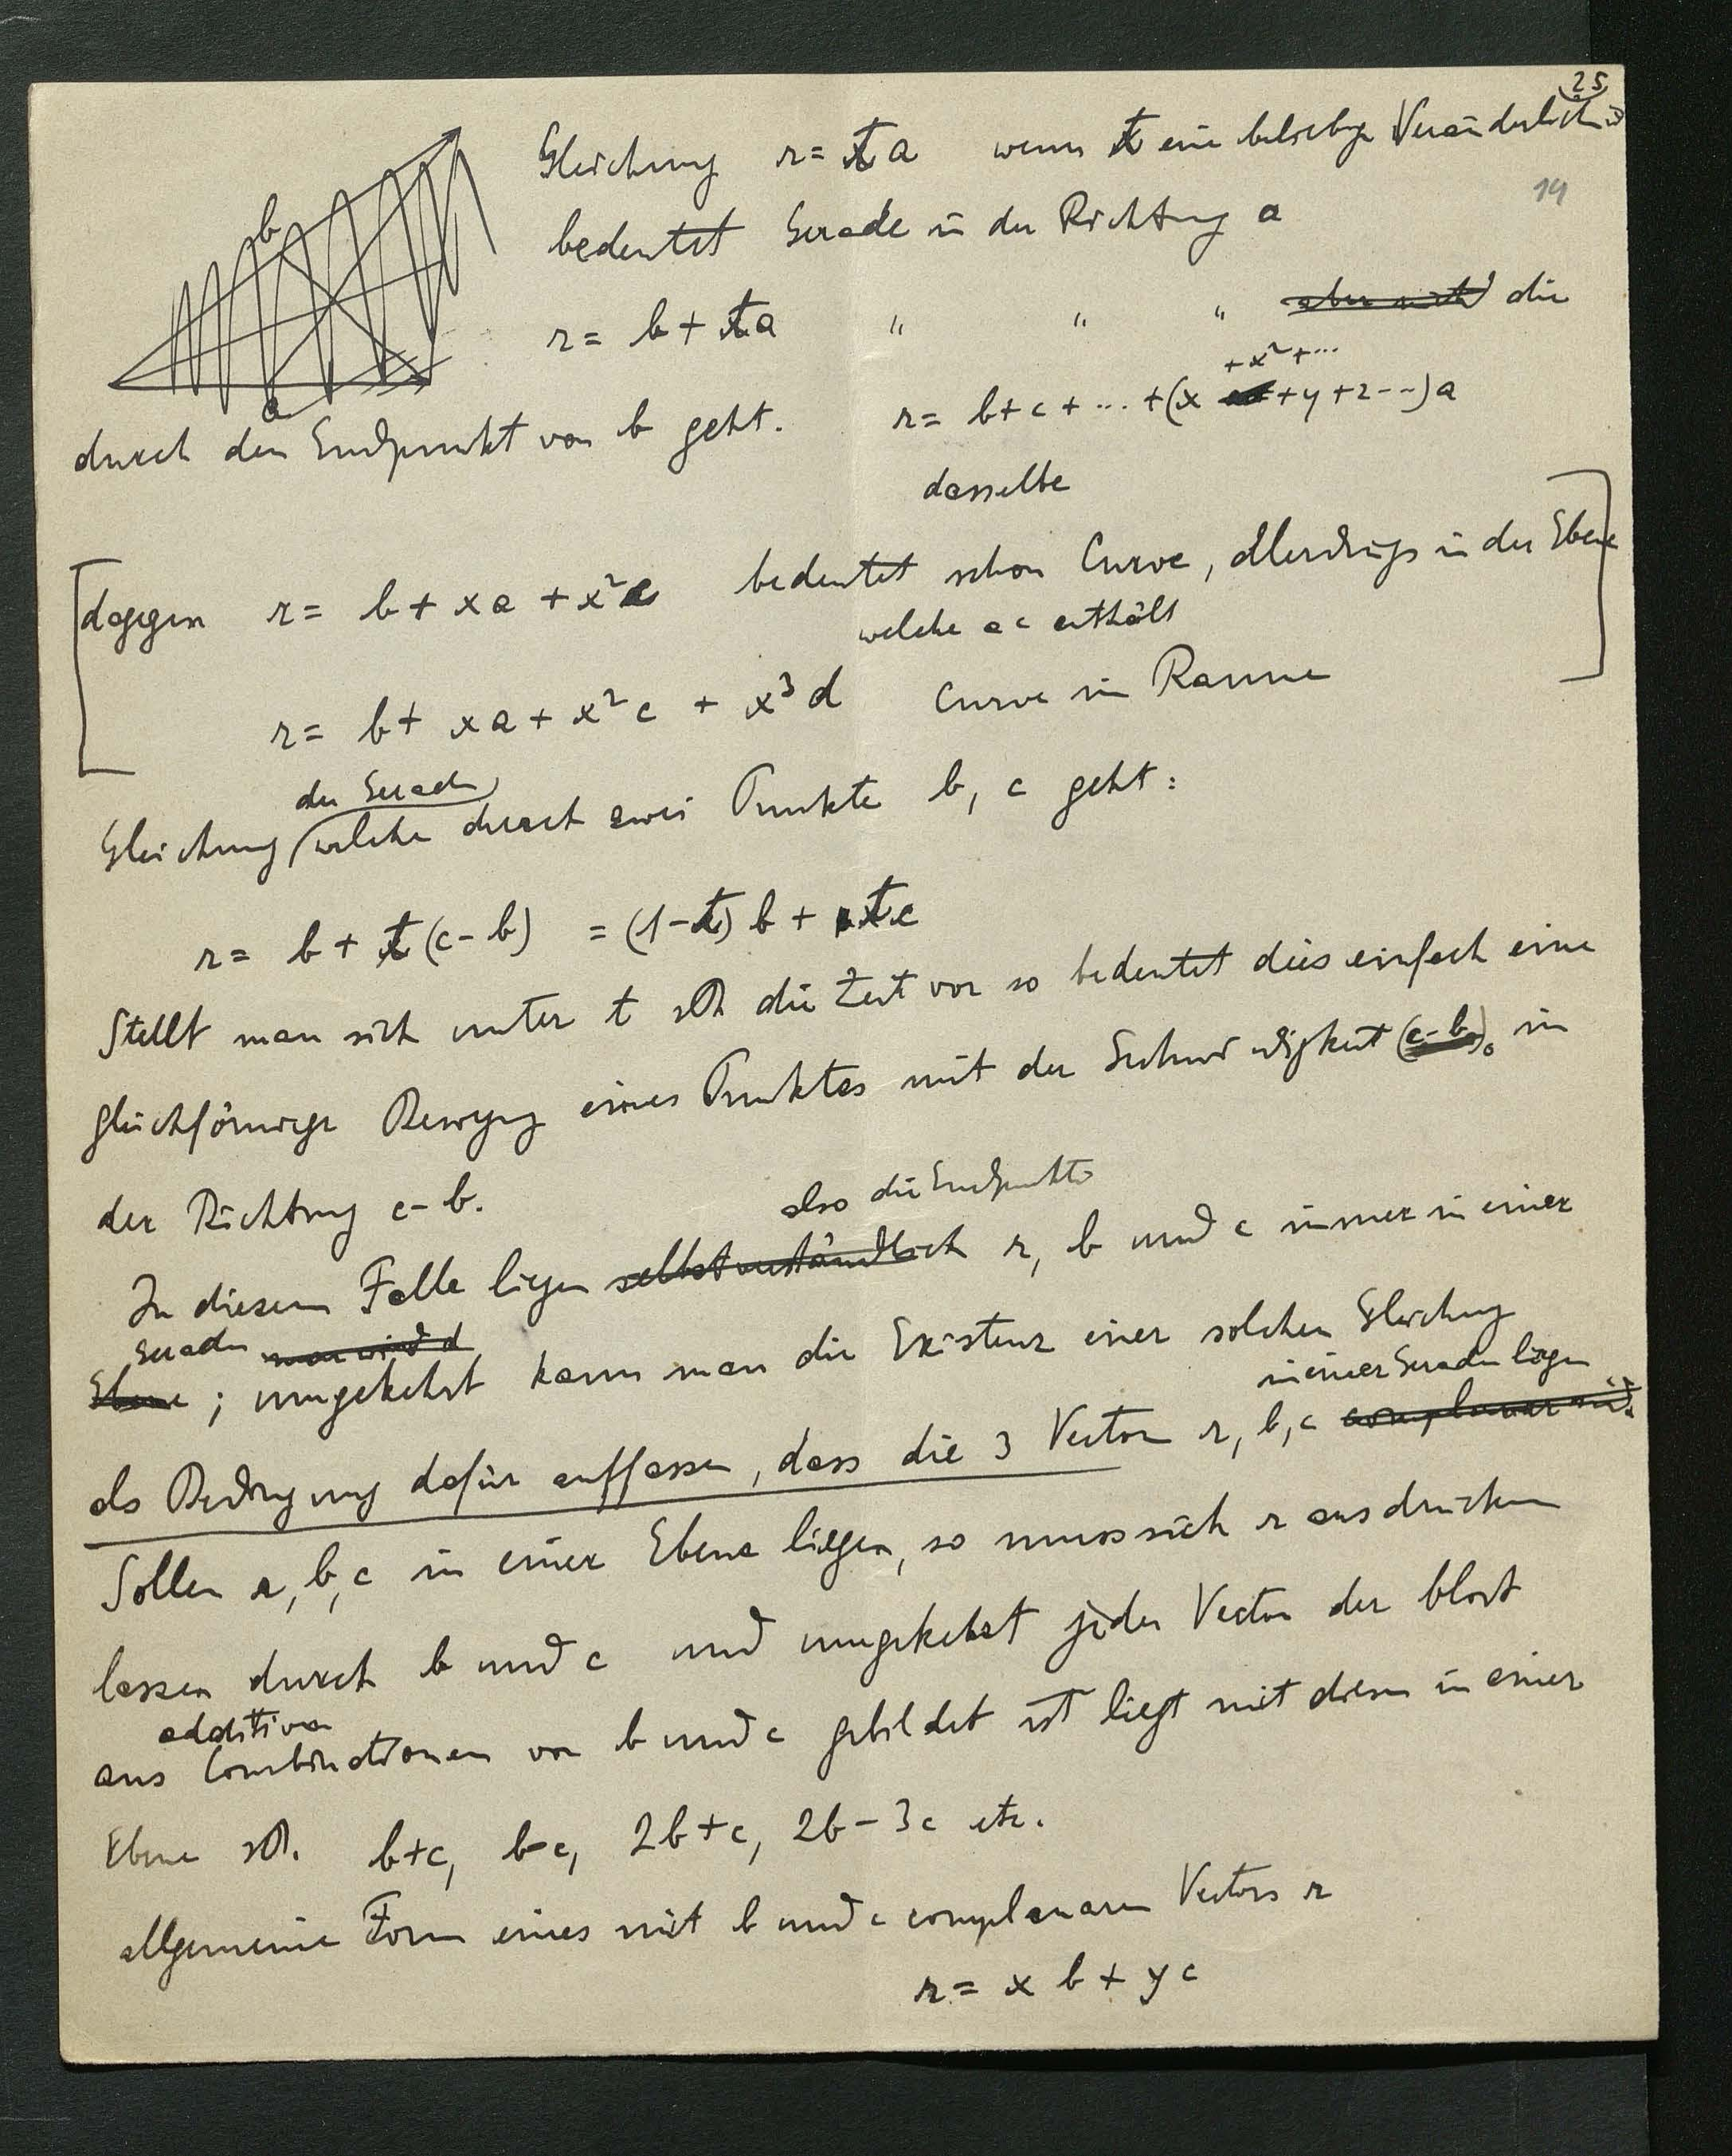 25
19
b
a
Gleichung r = ta wenn t eine beliebige Veränderliche
bedeutet Gerade in der Richtung a
r = b + ta " " " aber nicht die
durch den Endpunkt von b geht. r = b + c + ... + (x + y + z --) a
+ x² + ...
dasselbe
[dagegen r = b + xa + x²c bedeutet schon Curve, allerdings in der Ebene
welche a c enthält
r = b + xa + x²c + x³d Curve im Raume ]
der Geraden
Gleichung welche durch zwei Punkte b, c geht:
r = b + t(c-b) = (1-t) b + tc
Stellt man sich unter t die Zeit vor so bedeutet dies einfach eine
gleichförmige Bewegung eines Punktes mit der Geschwindigkeit (c-b)₀ in
der Richtung c-b.
also die Endpunkte
In diesem Falle liegen selbstverständlich r, b und c immer in einer
Geraden man wird
Ebene ; umgekehrt kann man die Existenz einer solchen Gleichung
in einer Geraden liegen
als Bedingung dafür auffassen, dass die 3 Vectoren r, b, c complanar sind.
Sollen r, b, c in einer Ebene liegen, so muss sich r ausdrücken
lassen durch b und c und umgekehrt jeder Vector der blost
additiven
aus Combinationen von b und c gebildet ist liegt mit diesen in einer
Ebene b+c, b-c, 2b+c, 2b-3c etc.
allgemeine Form eines mit b und c complanaren Vectors r
r = x b + y c